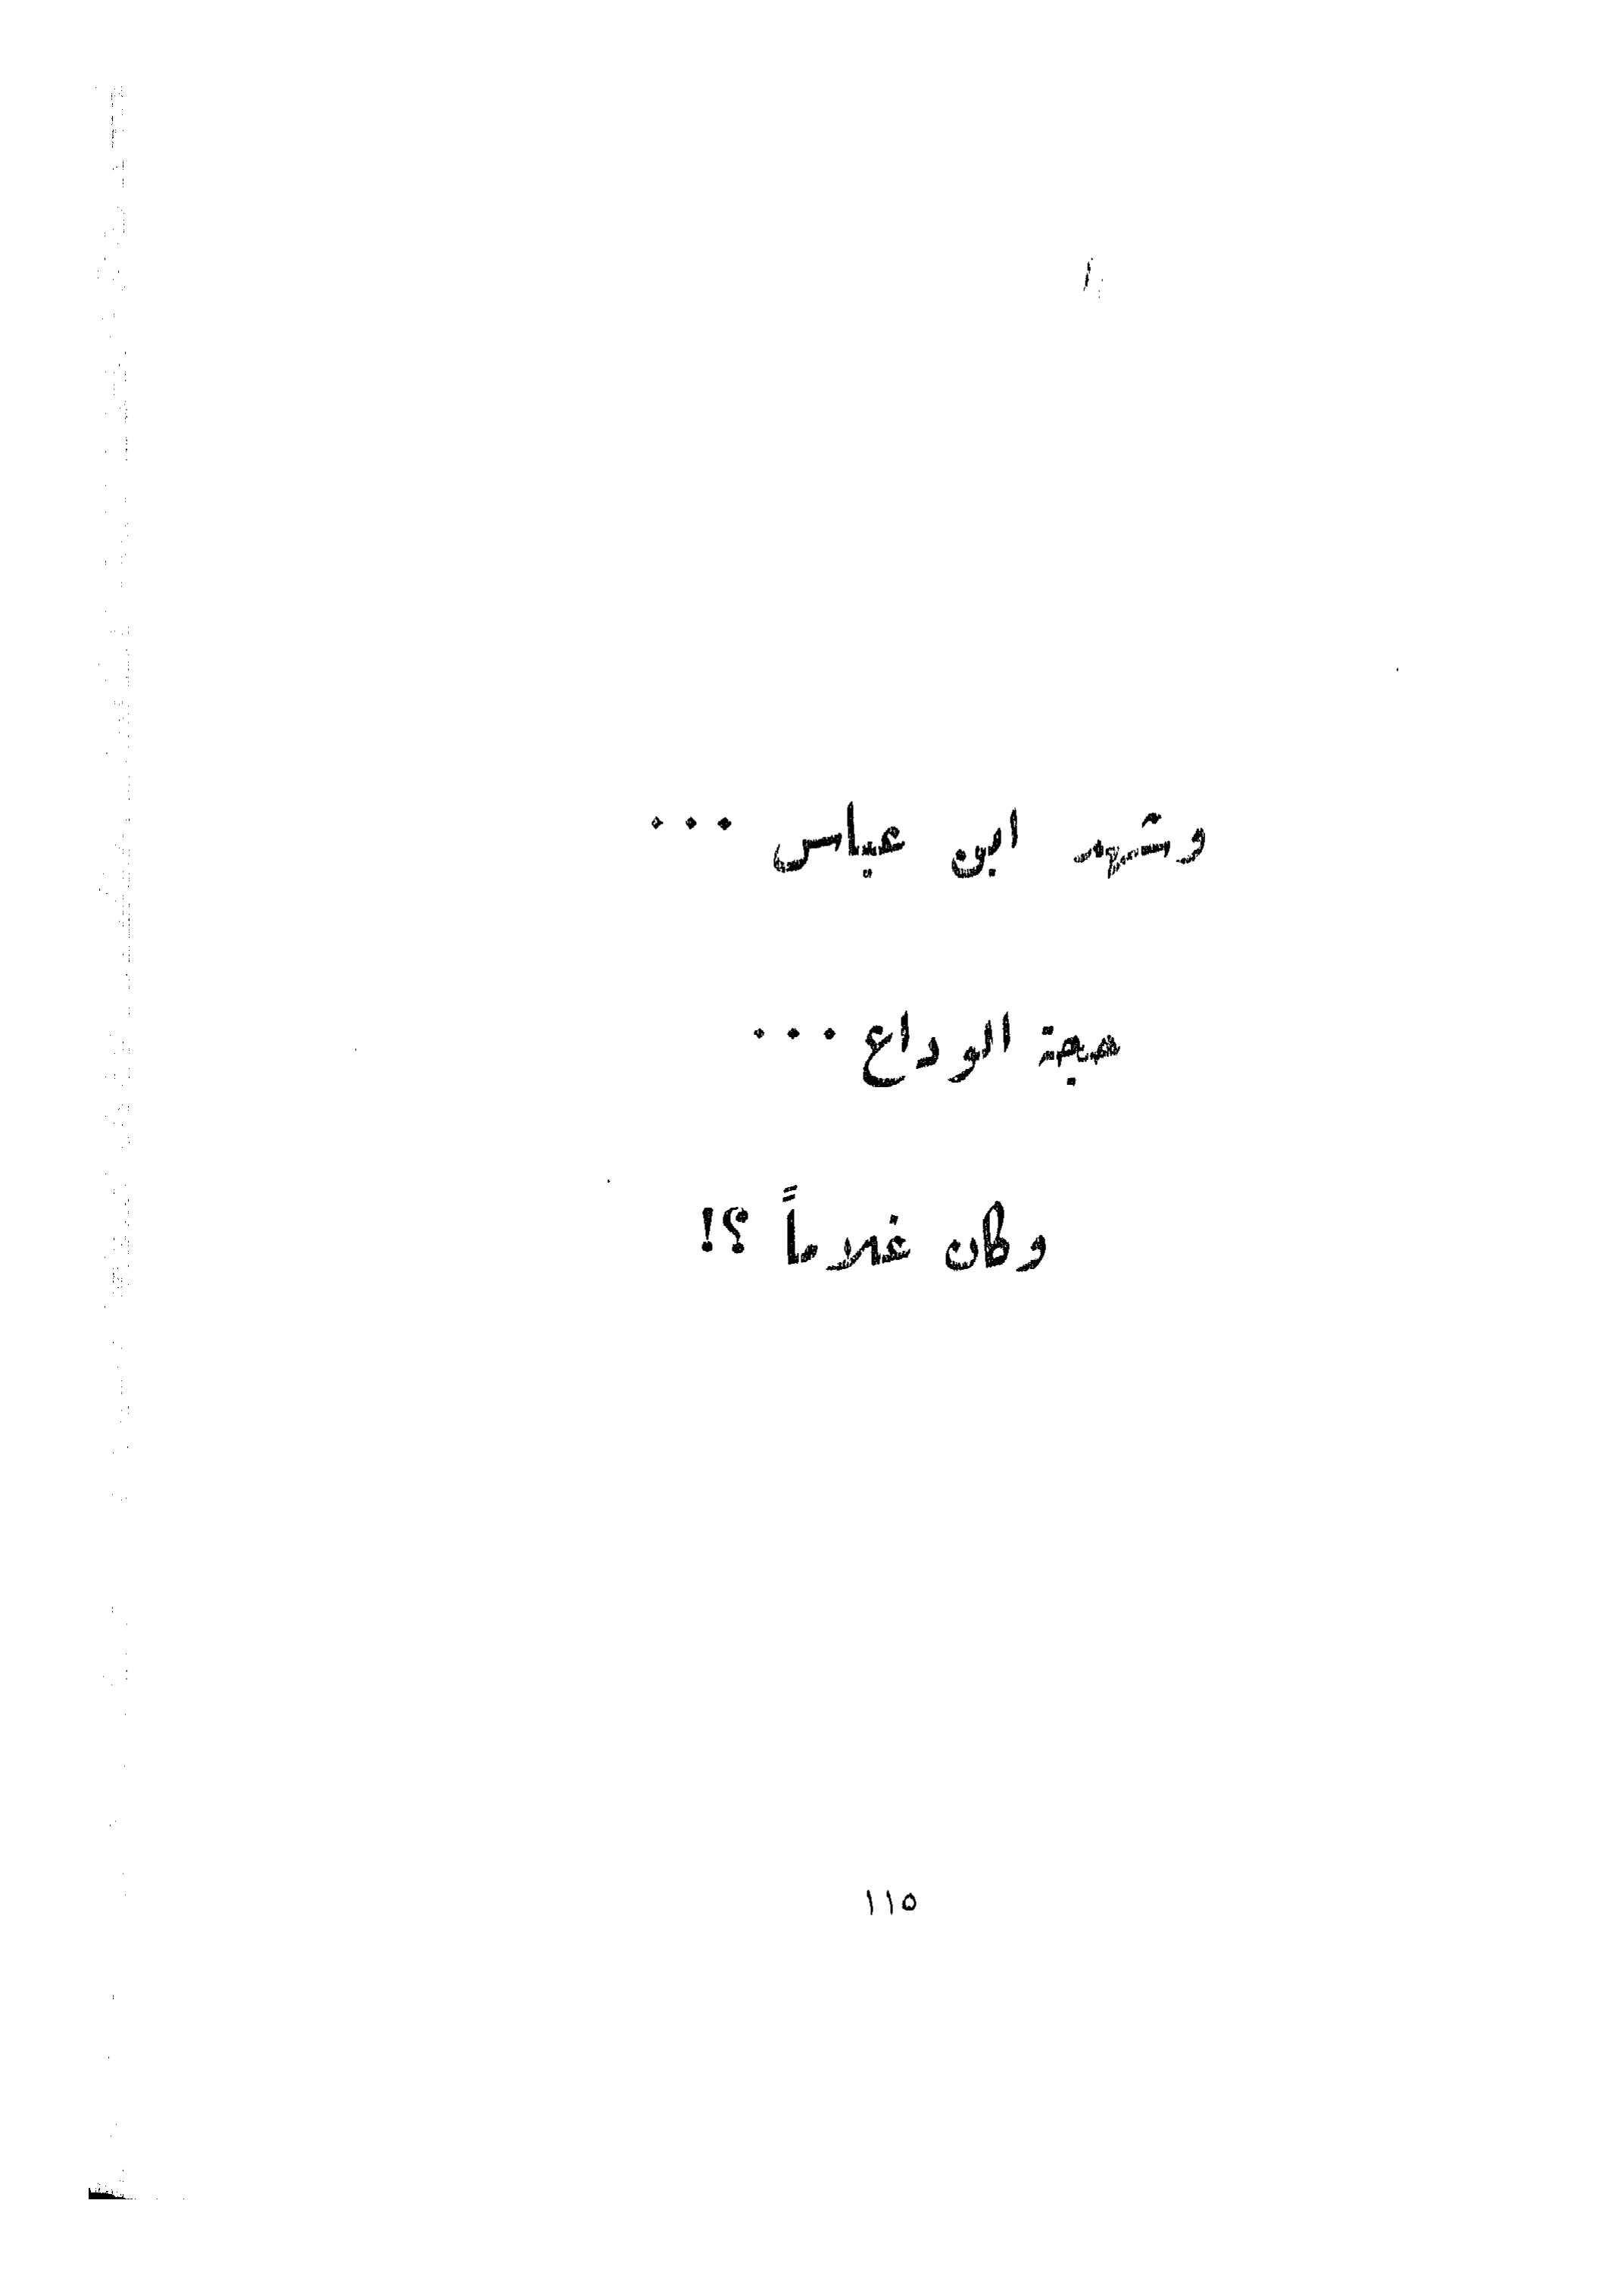 وشهد ابن عباس ...
حجة الوداع ...
وكان غلاماً ؟!
١١٥